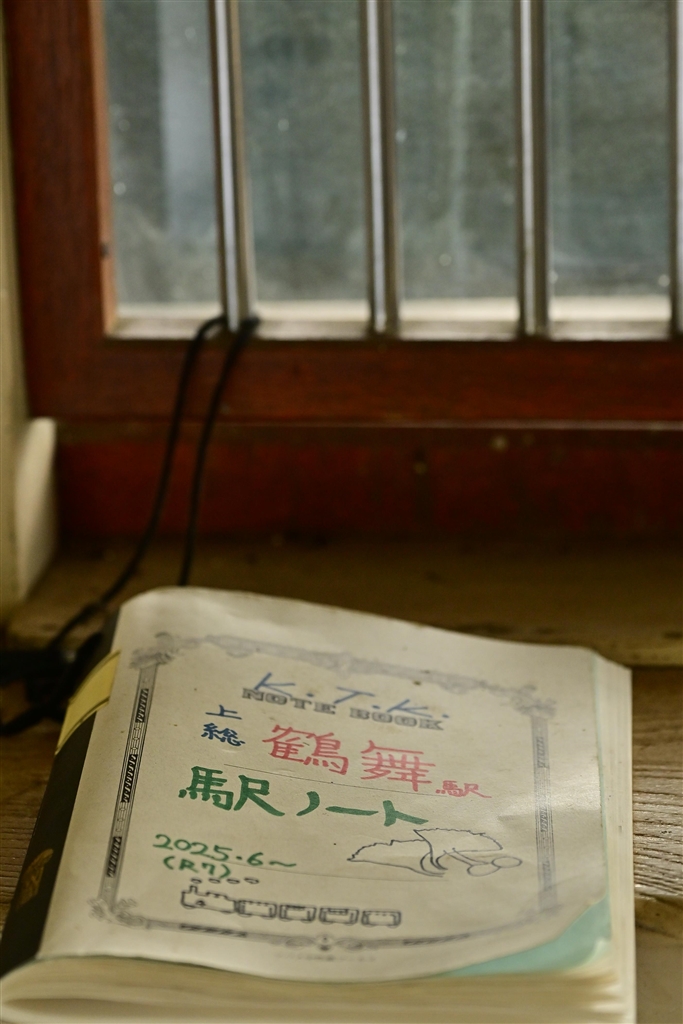 K.T.K.
NOTE BOOK
上総 鶴舞駅
駅ノート
2025.6~
(R7)